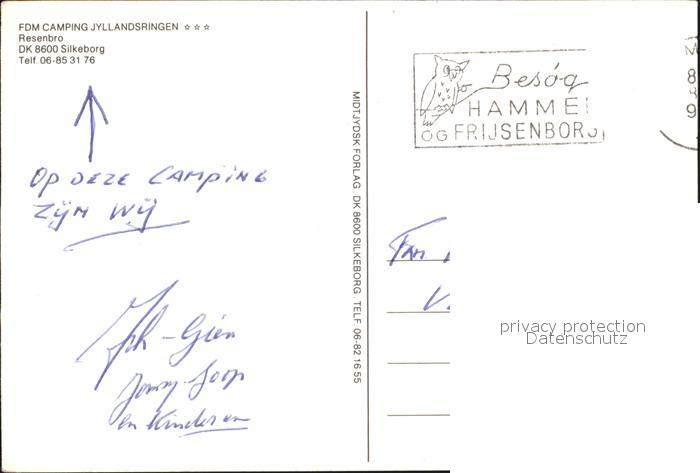 FDM CAMPING JYLLANDSRINGEN ☆ ☆ ☆
Resenbro
DK 8600 Silkeborg
Telf. 06-85 31 76
Op deze Camping
Zijn wij
Joh - Gien
Jonny - Joop
en Kinderen
MIDTJYDSK FORLAG . DK 8600 SILKEBORG . TELF. 06-82 16 55
Besøg
HAMMEL
OG FRIJSENBORG
Fam
V.
privacy protection
Datenschutz